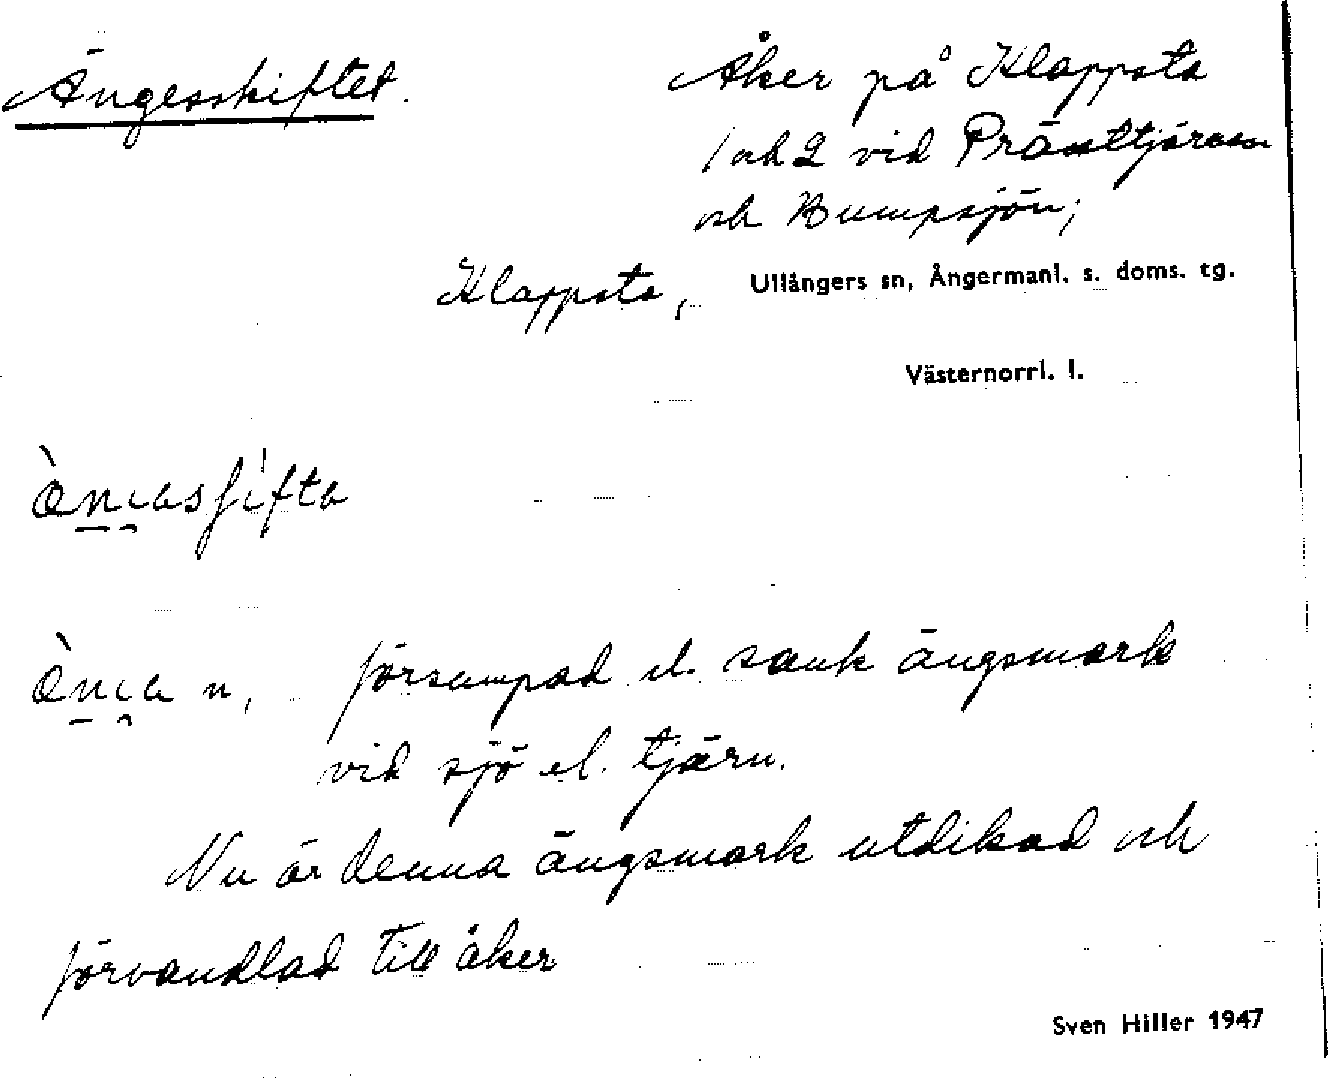 Ängesskiftet.
Åker på Klappsta
1 och 2 vid Prästtjärnen
och Bumpsjön;
Klappsta, Ullångers sn, Ångermanl. s. doms. tg.
Västernorrl. l.
försumpad el. sank ängsmark
vid sjö el. tjärn.
Nu är denna ängsmark utdikad och
förvandlad till åker
Sven Hiller 1947